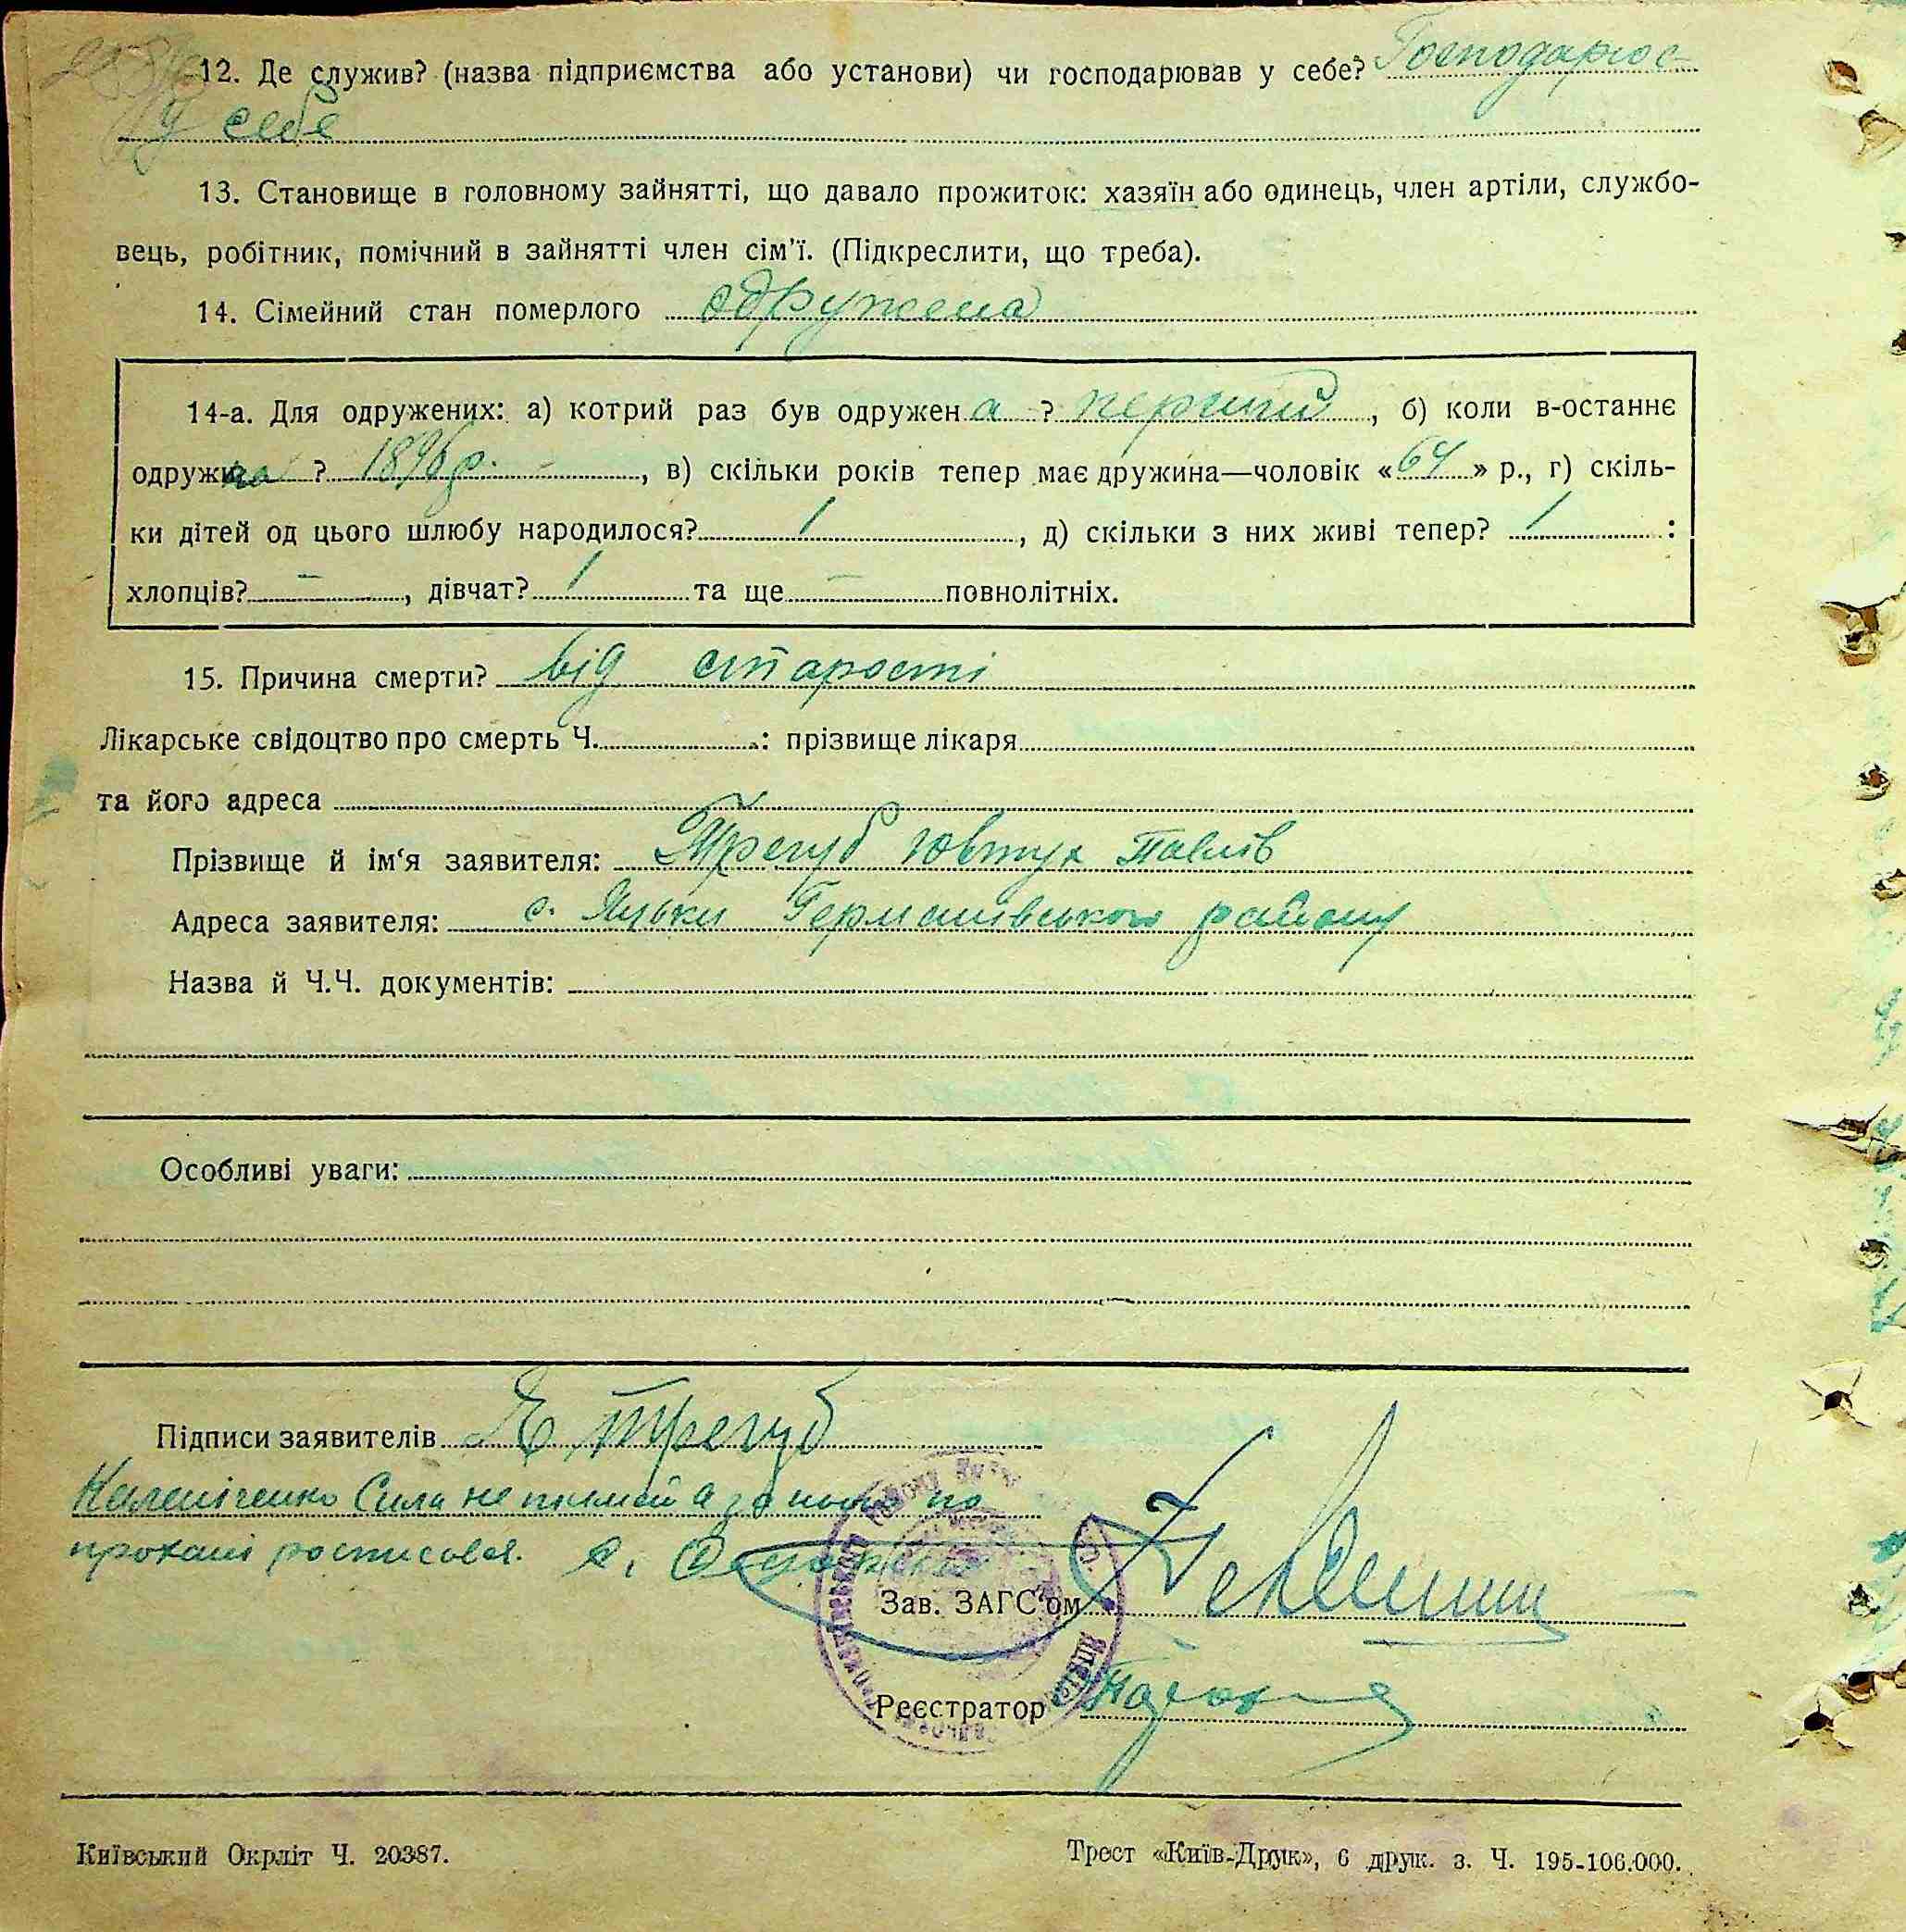 12. Де служив? (назва підприємства або установи) чи господарював у себе? Господарює
у себе
13. Становище в головному зайнятті, що давало прожиток: хазяїн або одинець, член артіли, службо-
вець, робітник, помічний в зайнятті член сім'ї. (Підкреслити, що треба).
14. Сімейний стан померлого одружена
14-а. Для одружених: а) котрий раз був одружен а ? перший, б) коли в-останнє
одружи ? 1896 р., в) скільки років тепер має дружина—чоловік «64» р., г) скіль-
ки дітей од цього шлюбу народилося? 1, д) скільки з них живі тепер? 1 :
хлопців? –, дівчат? 1 та ще – повнолітніх.
15. Причина смерти? від старості
Лікарське свідоцтво про смерть Ч. : прізвище лікаря
та його адреса
Прізвище й ім'я заявителя: ТрегубЮвтух Павлів
Адреса заявителя: с. Яцьки Германівського району
Назва й Ч.Ч. документів:
Особливі уваги:
Підписи заявителів Є Трегуб
Каленіченко Сила не писмен а за нього по
прохані росписовся.
Зав. ЗАГС'ом
Реєстратор
Київський Окрліт Ч. 20387.
Трест «Київ-Друк», 6 друк. з. Ч. 195-106.000.